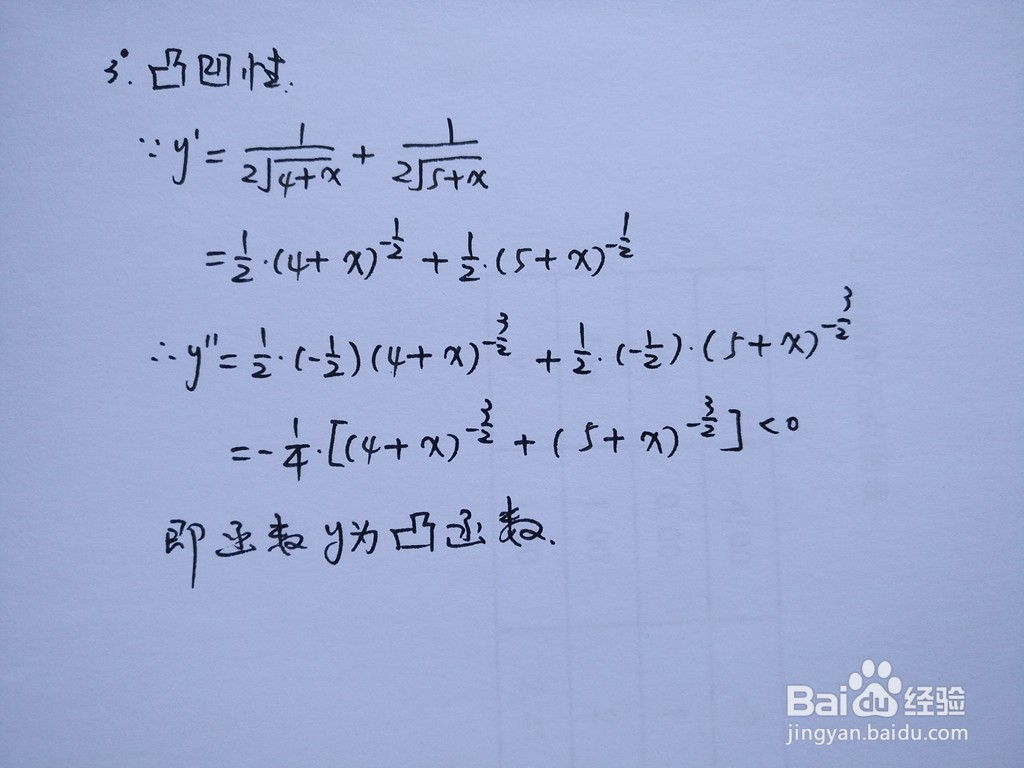 3°. 凸凹性.
∵ y' = 1/(2√(4+x)) + 1/(2√(5+x))
= 1/2·(4+x)^(-1/2) + 1/2·(5+x)^(-1/2)
∴ y'' = 1/2·(-1/2)(4+x)^(-3/2) + 1/2·(-1/2)·(5+x)^(-3/2)
= -1/4·[(4+x)^(-3/2) + (5+x)^(-3/2)] < 0
即函数y为凸函数.
Baidu经验
jingyan.baidu.com